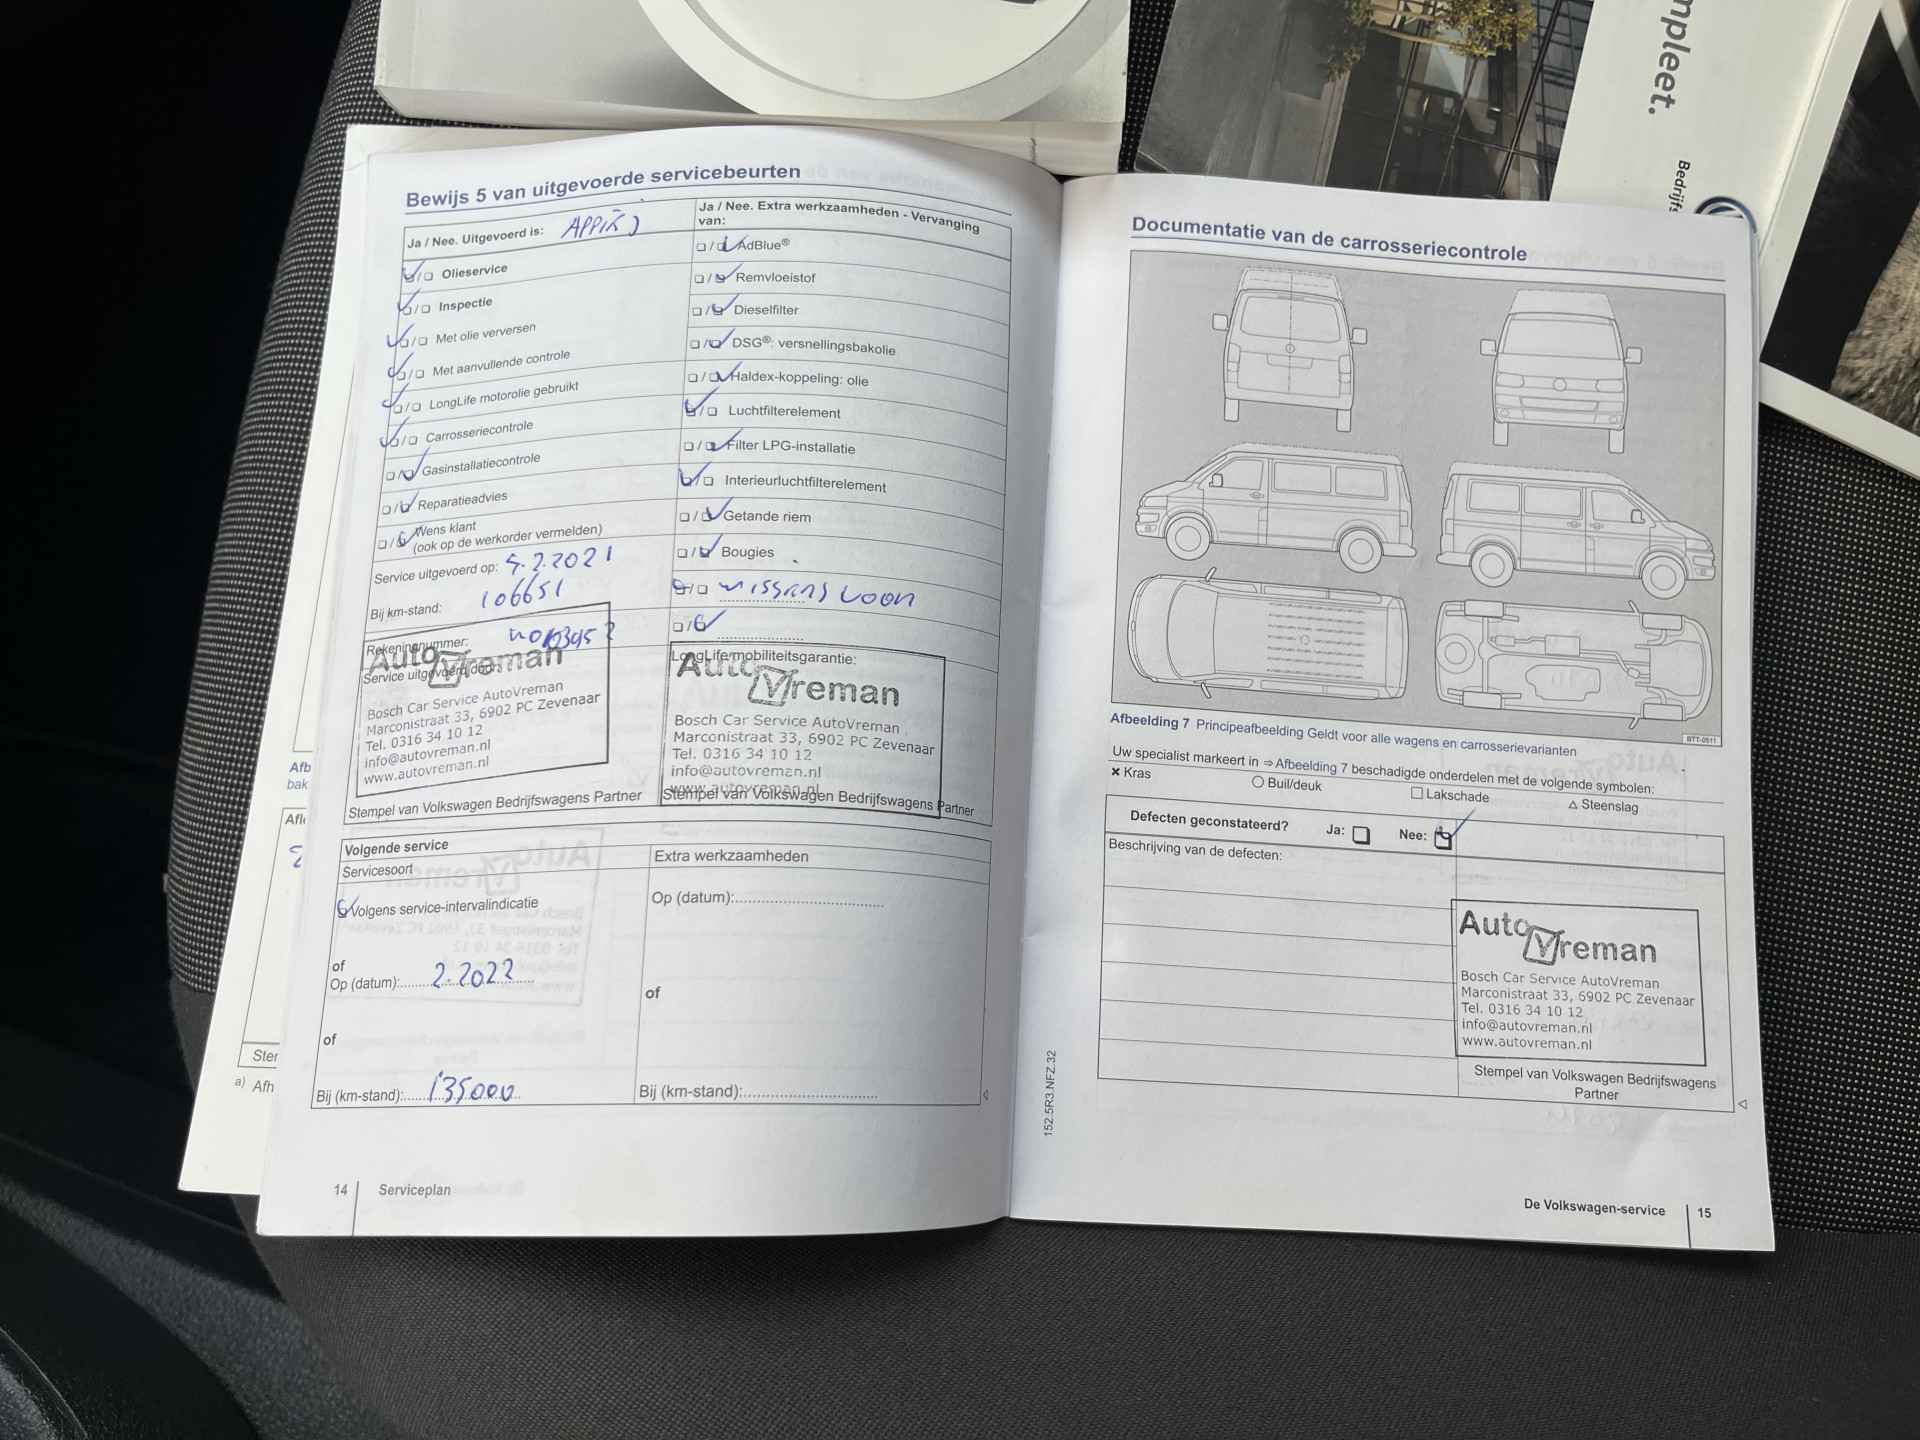 mpleet.
Bedrijfs
Bewijs 5 van uitgevoerde servicebeurten
Ja / Nee. Uitgevoerd is:
Olieservice
Inspectie
Met olie verversen
Met aanvullende controle
LongLife motorolie gebruikt
Carrosseriecontrole
Gasinstallatiecontrole
Reparatieadvies
Wens klant
(ook op de werkorder vermelden)
Service uitgevoerd op: 5.2.2021
Bij km-stand: 106651
Rekeningnummer:
Service uitgevoerd door:
Auto Vreman
Bosch Car Service AutoVreman
Marconistraat 33, 6902 PC Zevenaar
Tel. 0316 34 10 12
info@autovreman.nl
www.autovreman.nl
Stempel van Volkswagen Bedrijfswagens Partner
Ja / Nee. Extra werkzaamheden - Vervanging
van:
AdBlue®
Remvloeistof
Dieselfilter
DSG®: versnellingsbakolie
Haldex-koppeling: olie
Luchtfilterelement
Filter LPG-installatie
Interieurluchtfilterelement
Getande riem
Bougies
LongLife mobiliteitsgarantie:
Auto Vreman
Bosch Car Service AutoVreman
Marconistraat 33, 6902 PC Zevenaar
Tel. 0316 34 10 12
info@autovreman.nl
www.autovreman.nl
Stempel van Volkswagen Bedrijfswagens Partner
Volgende service
Servicesoort
Volgens service-intervalindicatie
of
Op (datum): 2.2022
of
Bij (km-stand): 135000
Extra werkzaamheden
Op (datum):
of
Bij (km-stand):
14 Serviceplan
Afb
bak
Ster
a) Afh
152.5R3.NFZ.32
Documentatie van de carrosseriecontrole
BTT-0511
Afbeelding 7 Principeafbeelding Geldt voor alle wagens en carrosserievarianten
Uw specialist markeert in ⇒ Afbeelding 7 beschadigde onderdelen met de volgende symbolen:
× Kras ○ Buil/deuk □ Lakschade △ Steenslag
Defecten geconstateerd? Ja: Nee:
Beschrijving van de defecten:
Auto Vreman
Bosch Car Service AutoVreman
Marconistraat 33, 6902 PC Zevenaar
Tel. 0316 34 10 12
info@autovreman.nl
www.autovreman.nl
Stempel van Volkswagen Bedrijfswagens
Partner
De Volkswagen-service 15